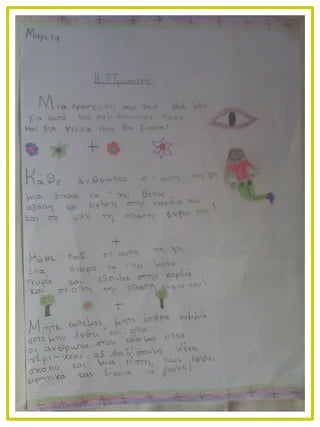 Μαρίζα
Η Προσευχή
Μια προσευχή σου θεέ μου
για αυτά που συμβαίνουν τώρα
και για εκείνα που θα γίνουν!
Κάθε άνθρωπος σ' αυτή τη γη
μια έννοια να 'χει θεέ
αγάπη και ειρήνη στην καρδιά του
και σε όλη τη πλάση γύρω του!
Κάθε παιδί σε αυτή τη γη
ένα όνειρο να 'χει μόνο
χαρά και ελπίδα στην καρδιά
και σ' όλη την πλάση γύρω του!
Μήτε πόλεμος μήτε έχθρα καμμιά
ποτέ μην έρθει και όλα
οι άνθρωποι στον κόσμο όλοι
χέρι - χέρι ας βαδίσουμε μ' ένα
σκοπό και μια πίστη, πως πρέπει
ειρηνικά και δίκαια να ζούμε!